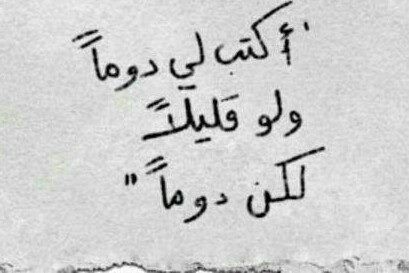 "أكتب لي دوماً
ولو قليلاً
لكن دوماً"